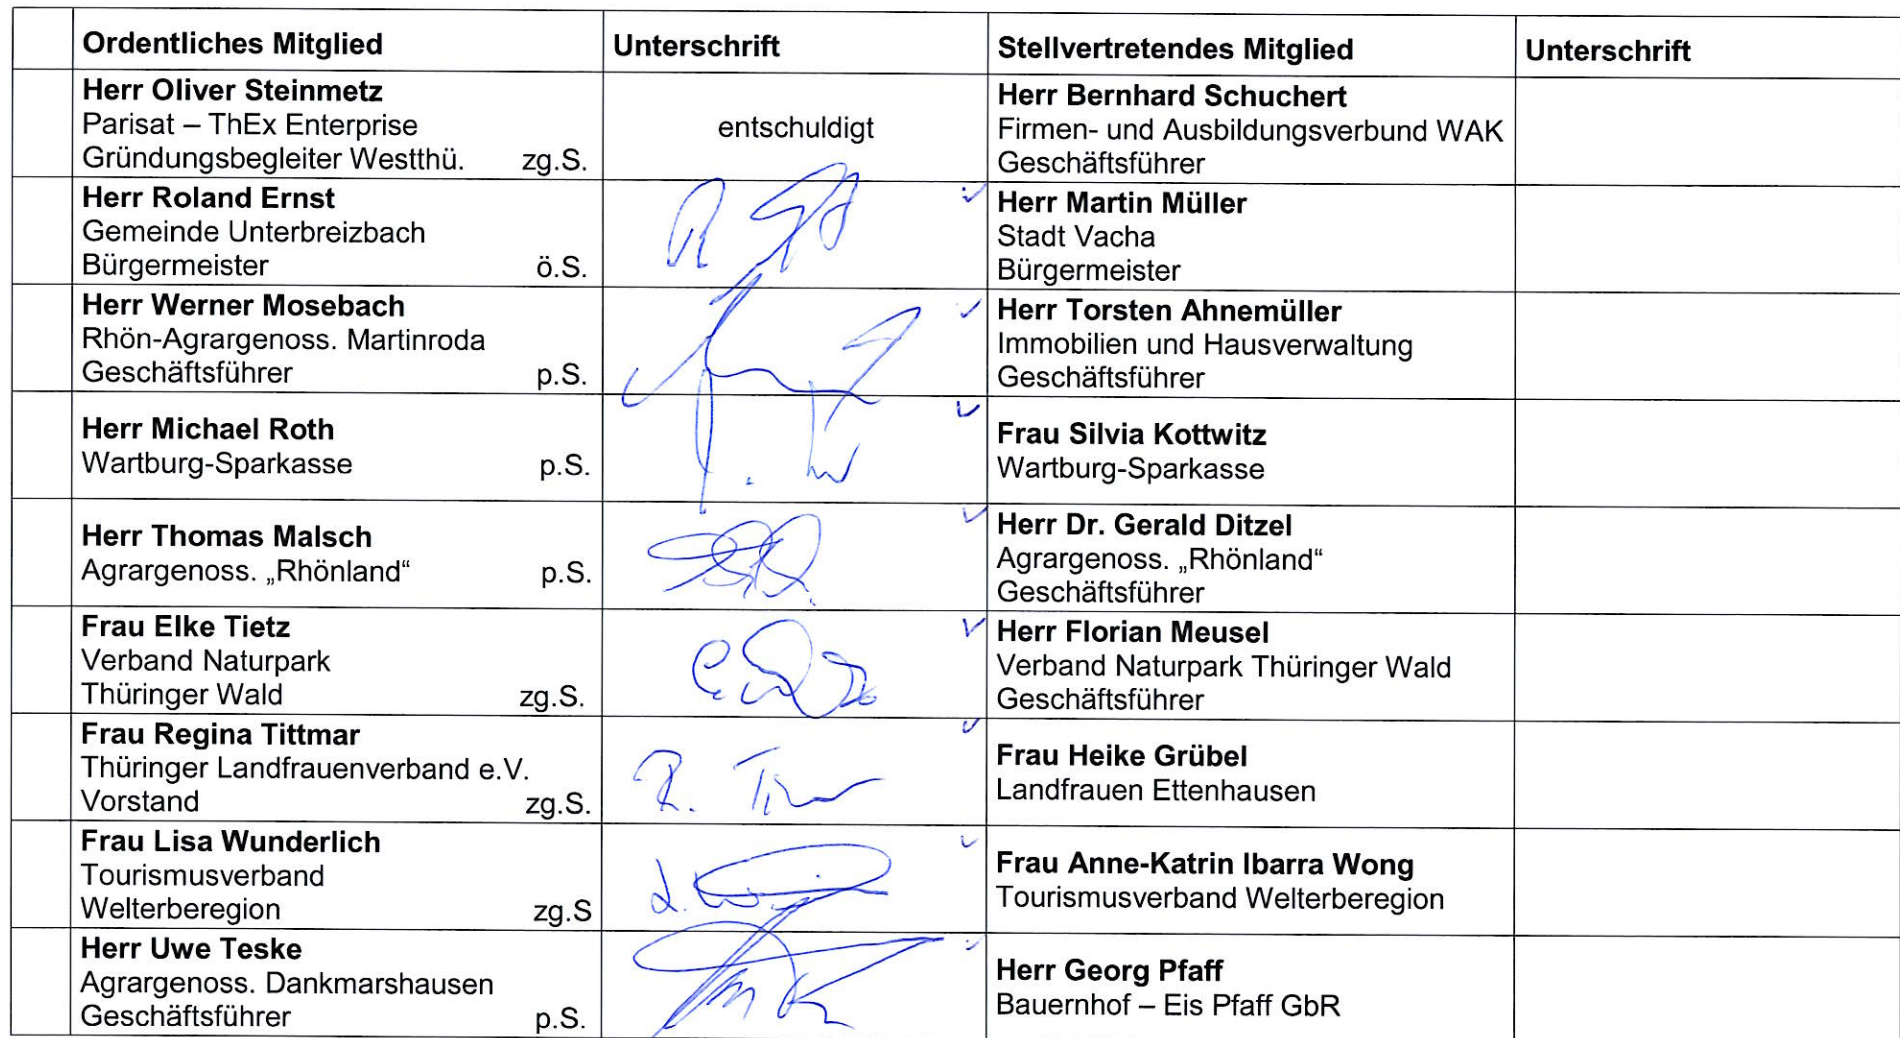 Ordentliches Mitglied Unterschrift Stellvertretendes Mitglied Unterschrift
Herr Oliver Steinmetz
Parisat – ThEx Enterprise
Gründungsbegleiter Westthü. zg.S.
entschuldigt
Herr Bernhard Schuchert
Firmen- und Ausbildungsverbund WAK
Geschäftsführer
Herr Roland Ernst
Gemeinde Unterbreizbach
Bürgermeister ö.S.
Herr Martin Müller
Stadt Vacha
Bürgermeister
Herr Werner Mosebach
Rhön-Agrargenoss. Martinroda
Geschäftsführer p.S.
Herr Torsten Ahnemüller
Immobilien und Hausverwaltung
Geschäftsführer
Herr Michael Roth
Wartburg-Sparkasse p.S.
Frau Silvia Kottwitz
Wartburg-Sparkasse
Herr Thomas Malsch
Agrargenoss. „Rhönland“ p.S.
Herr Dr. Gerald Ditzel
Agrargenoss. „Rhönland“
Geschäftsführer
Frau Elke Tietz
Verband Naturpark
Thüringer Wald zg.S.
Herr Florian Meusel
Verband Naturpark Thüringer Wald
Geschäftsführer
Frau Regina Tittmar
Thüringer Landfrauenverband e.V.
Vorstand zg.S.
Frau Heike Grübel
Landfrauen Ettenhausen
Frau Lisa Wunderlich
Tourismusverband
Welterberegion zg.S
Frau Anne-Katrin Ibarra Wong
Tourismusverband Welterberegion
Herr Uwe Teske
Agrargenoss. Dankmarshausen
Geschäftsführer p.S.
Herr Georg Pfaff
Bauernhof – Eis Pfaff GbR